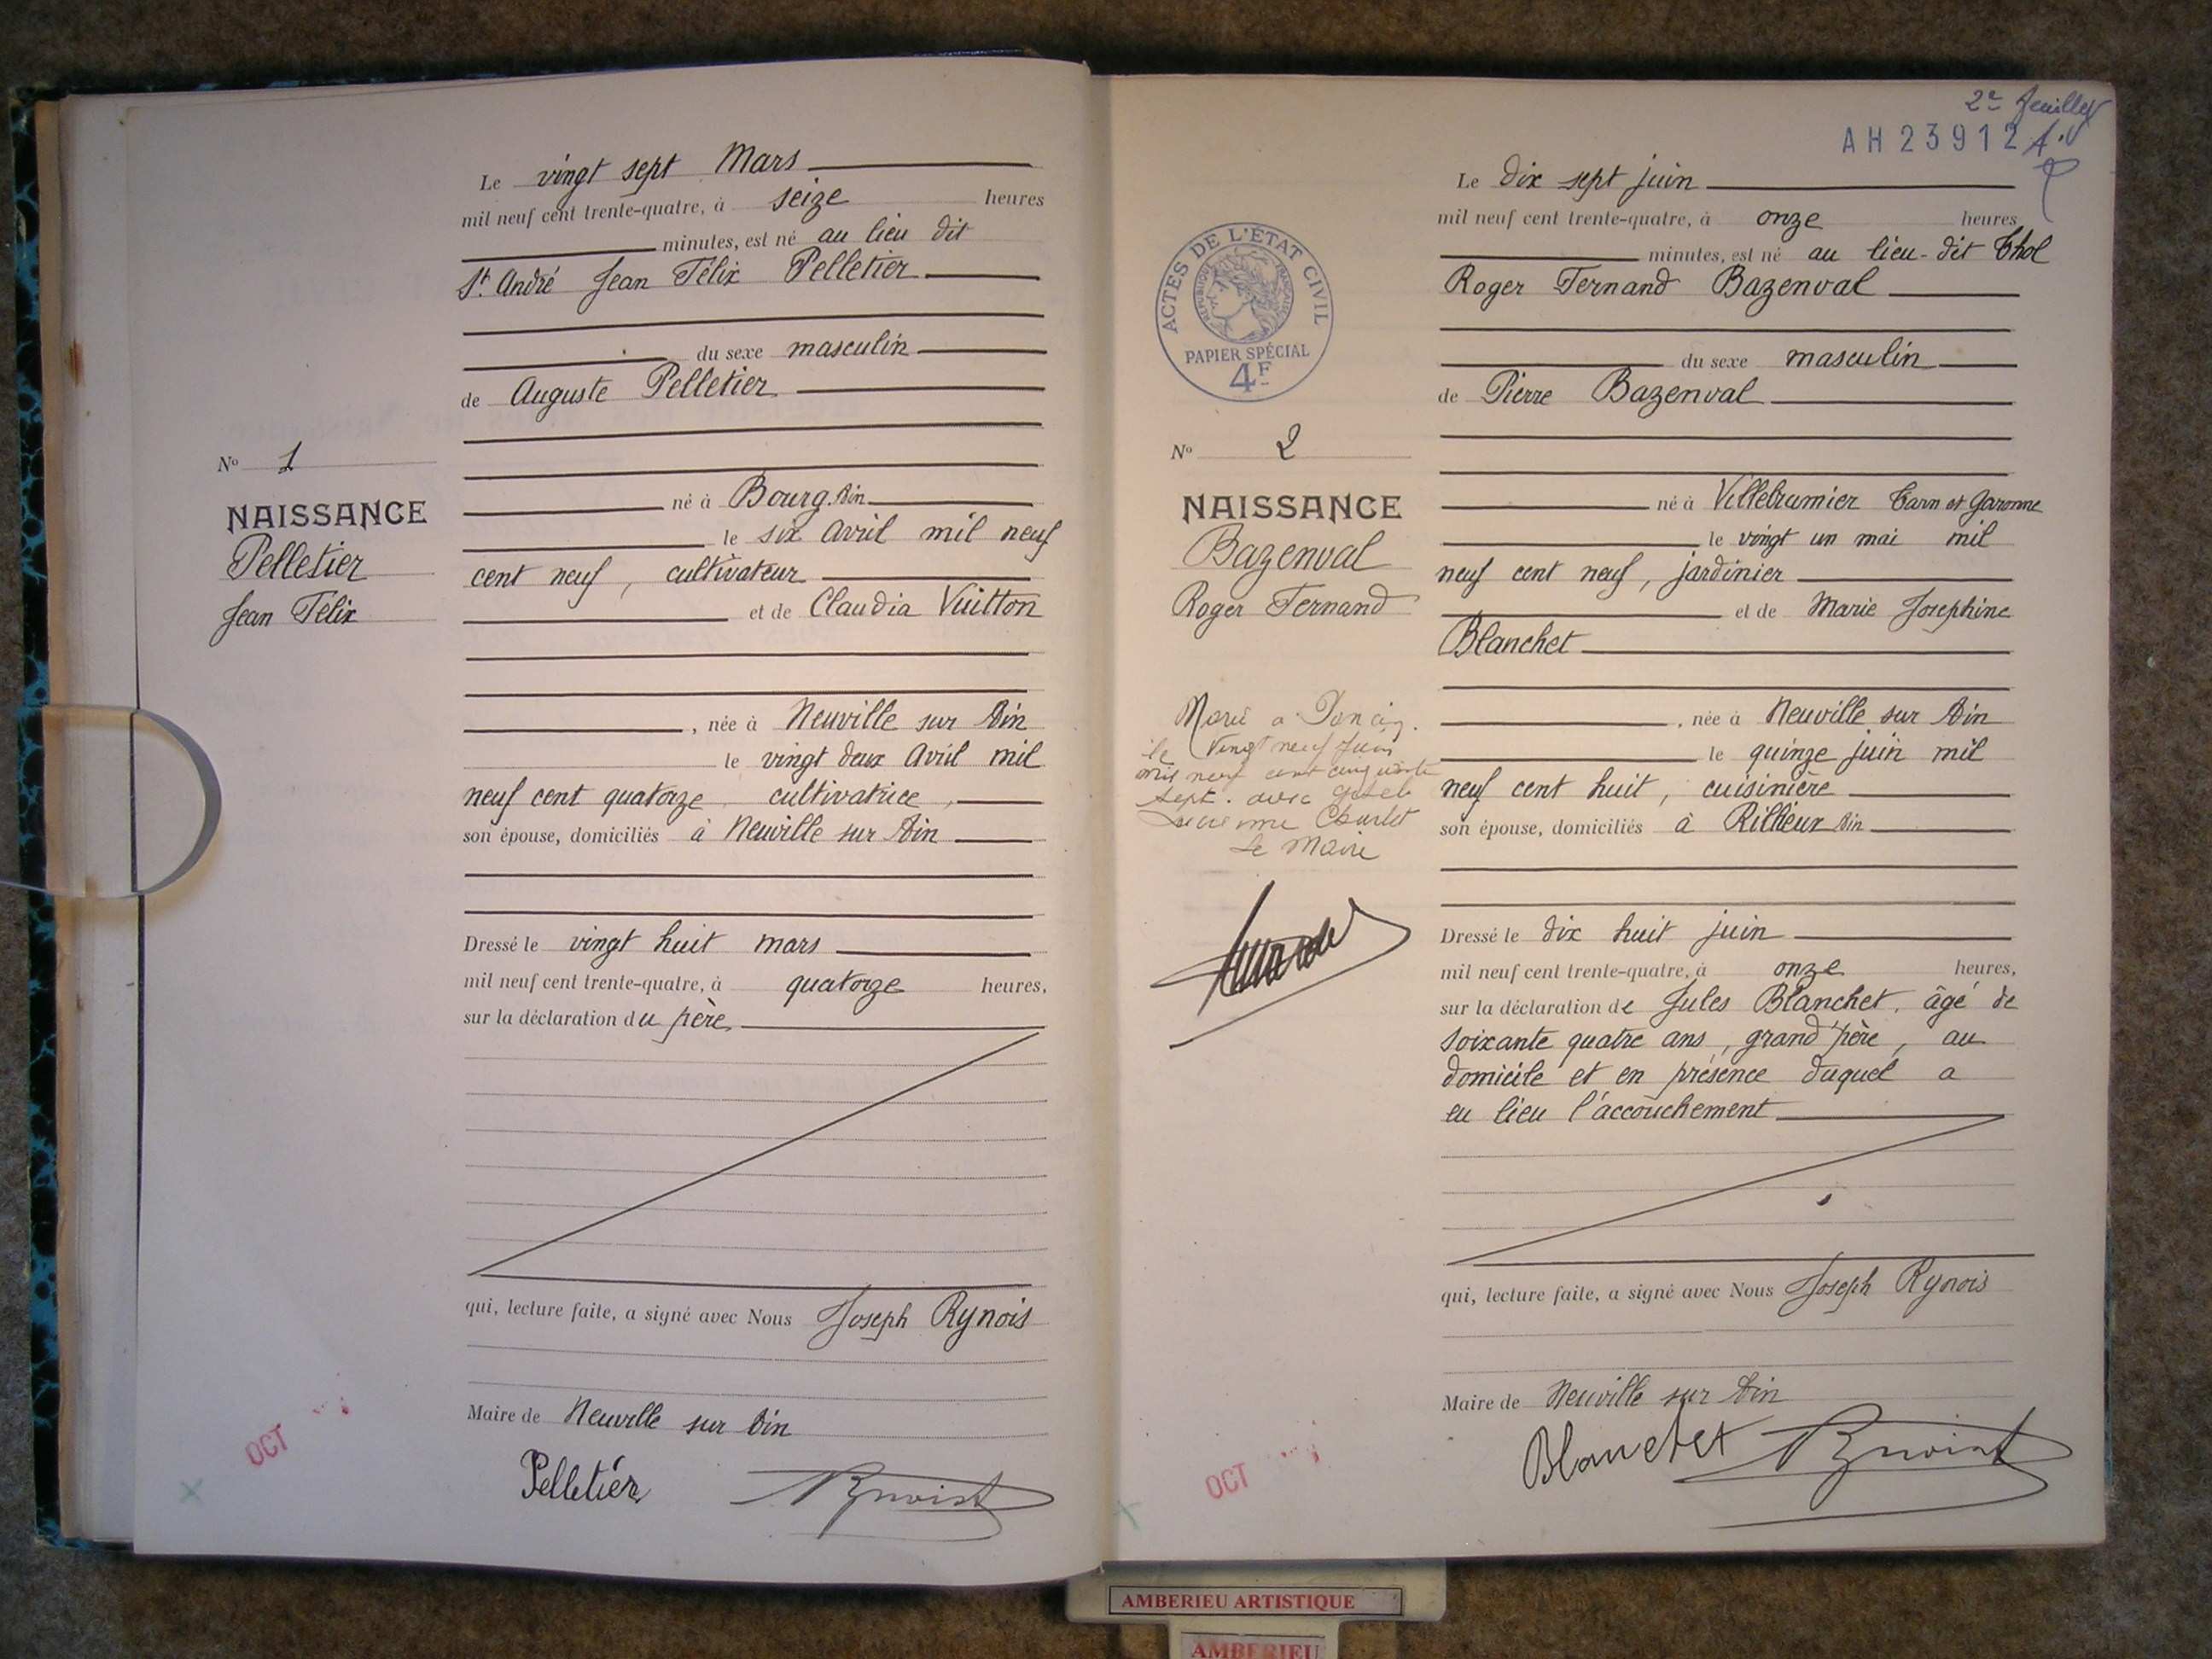 Le vingt sept Mars
mil neuf cent trente-quatre, à seize heures
minutes, est né au lieu dit
St. André Jean Félix Pelletier
du sexe masculin
de Auguste Pelletier
né à Bourg. Ain
le six Avril mil neuf
cent neuf, cultivateur
et de Claudia Vuitton
, née à Neuville sur Ain
le vingt deux Avril mil
neuf cent quatorze cultivatrice,
son épouse, domiciliés à Neuville sur Ain
Dressé le vingt huit mars
mil neuf cent trente-quatre, à quatorze heures,
sur la déclaration du père
qui, lecture faite, a signé avec Nous Joseph Rynois
Maire de Neuville sur Ain
Pelletier
No 1
NAISSANCE
Pelletier
Jean Félix
OCT
2e feuillet
AH 23912
Le dix sept juin
mil neuf cent trente-quatre, à onze heures
minutes, est né au lieu-dit Thol
Roger Fernand Bazenval
du sexe masculin
de Pierre Bazenval
né à Villebrumier Tarn et Garonne
le vingt un mai mil
neuf cent neuf, jardinier
et de Marie Josephine
Blanchet
, née à Neuville sur Ain
le quinze juin mil
neuf cent huit, cuisinière
son épouse, domiciliés à Rillieux Ain
Dressé le dix huit juin
mil neuf cent trente-quatre, à onze heures,
sur la déclaration de Jules Blanchet, âgé de
soixante quatre ans, grand'père, au
domicile et en présence duquel a
eu lieu l'accouchement
qui, lecture faite, a signé avec Nous Joseph Rynois
Maire de Neuville sur Ain
Blanchet
ACTES DE L'ÉTAT CIVIL
RÉPUBLIQUE FRANÇAISE
PAPIER SPÉCIAL
4F
No 2
NAISSANCE
Bazenval
Roger Fernand
Marié a
le Vingt neuf Juin
mil neuf cent cinquante
sept. avec
Le Maire
OCT
AMBERIEU ARTISTIQUE
AMBERIEU